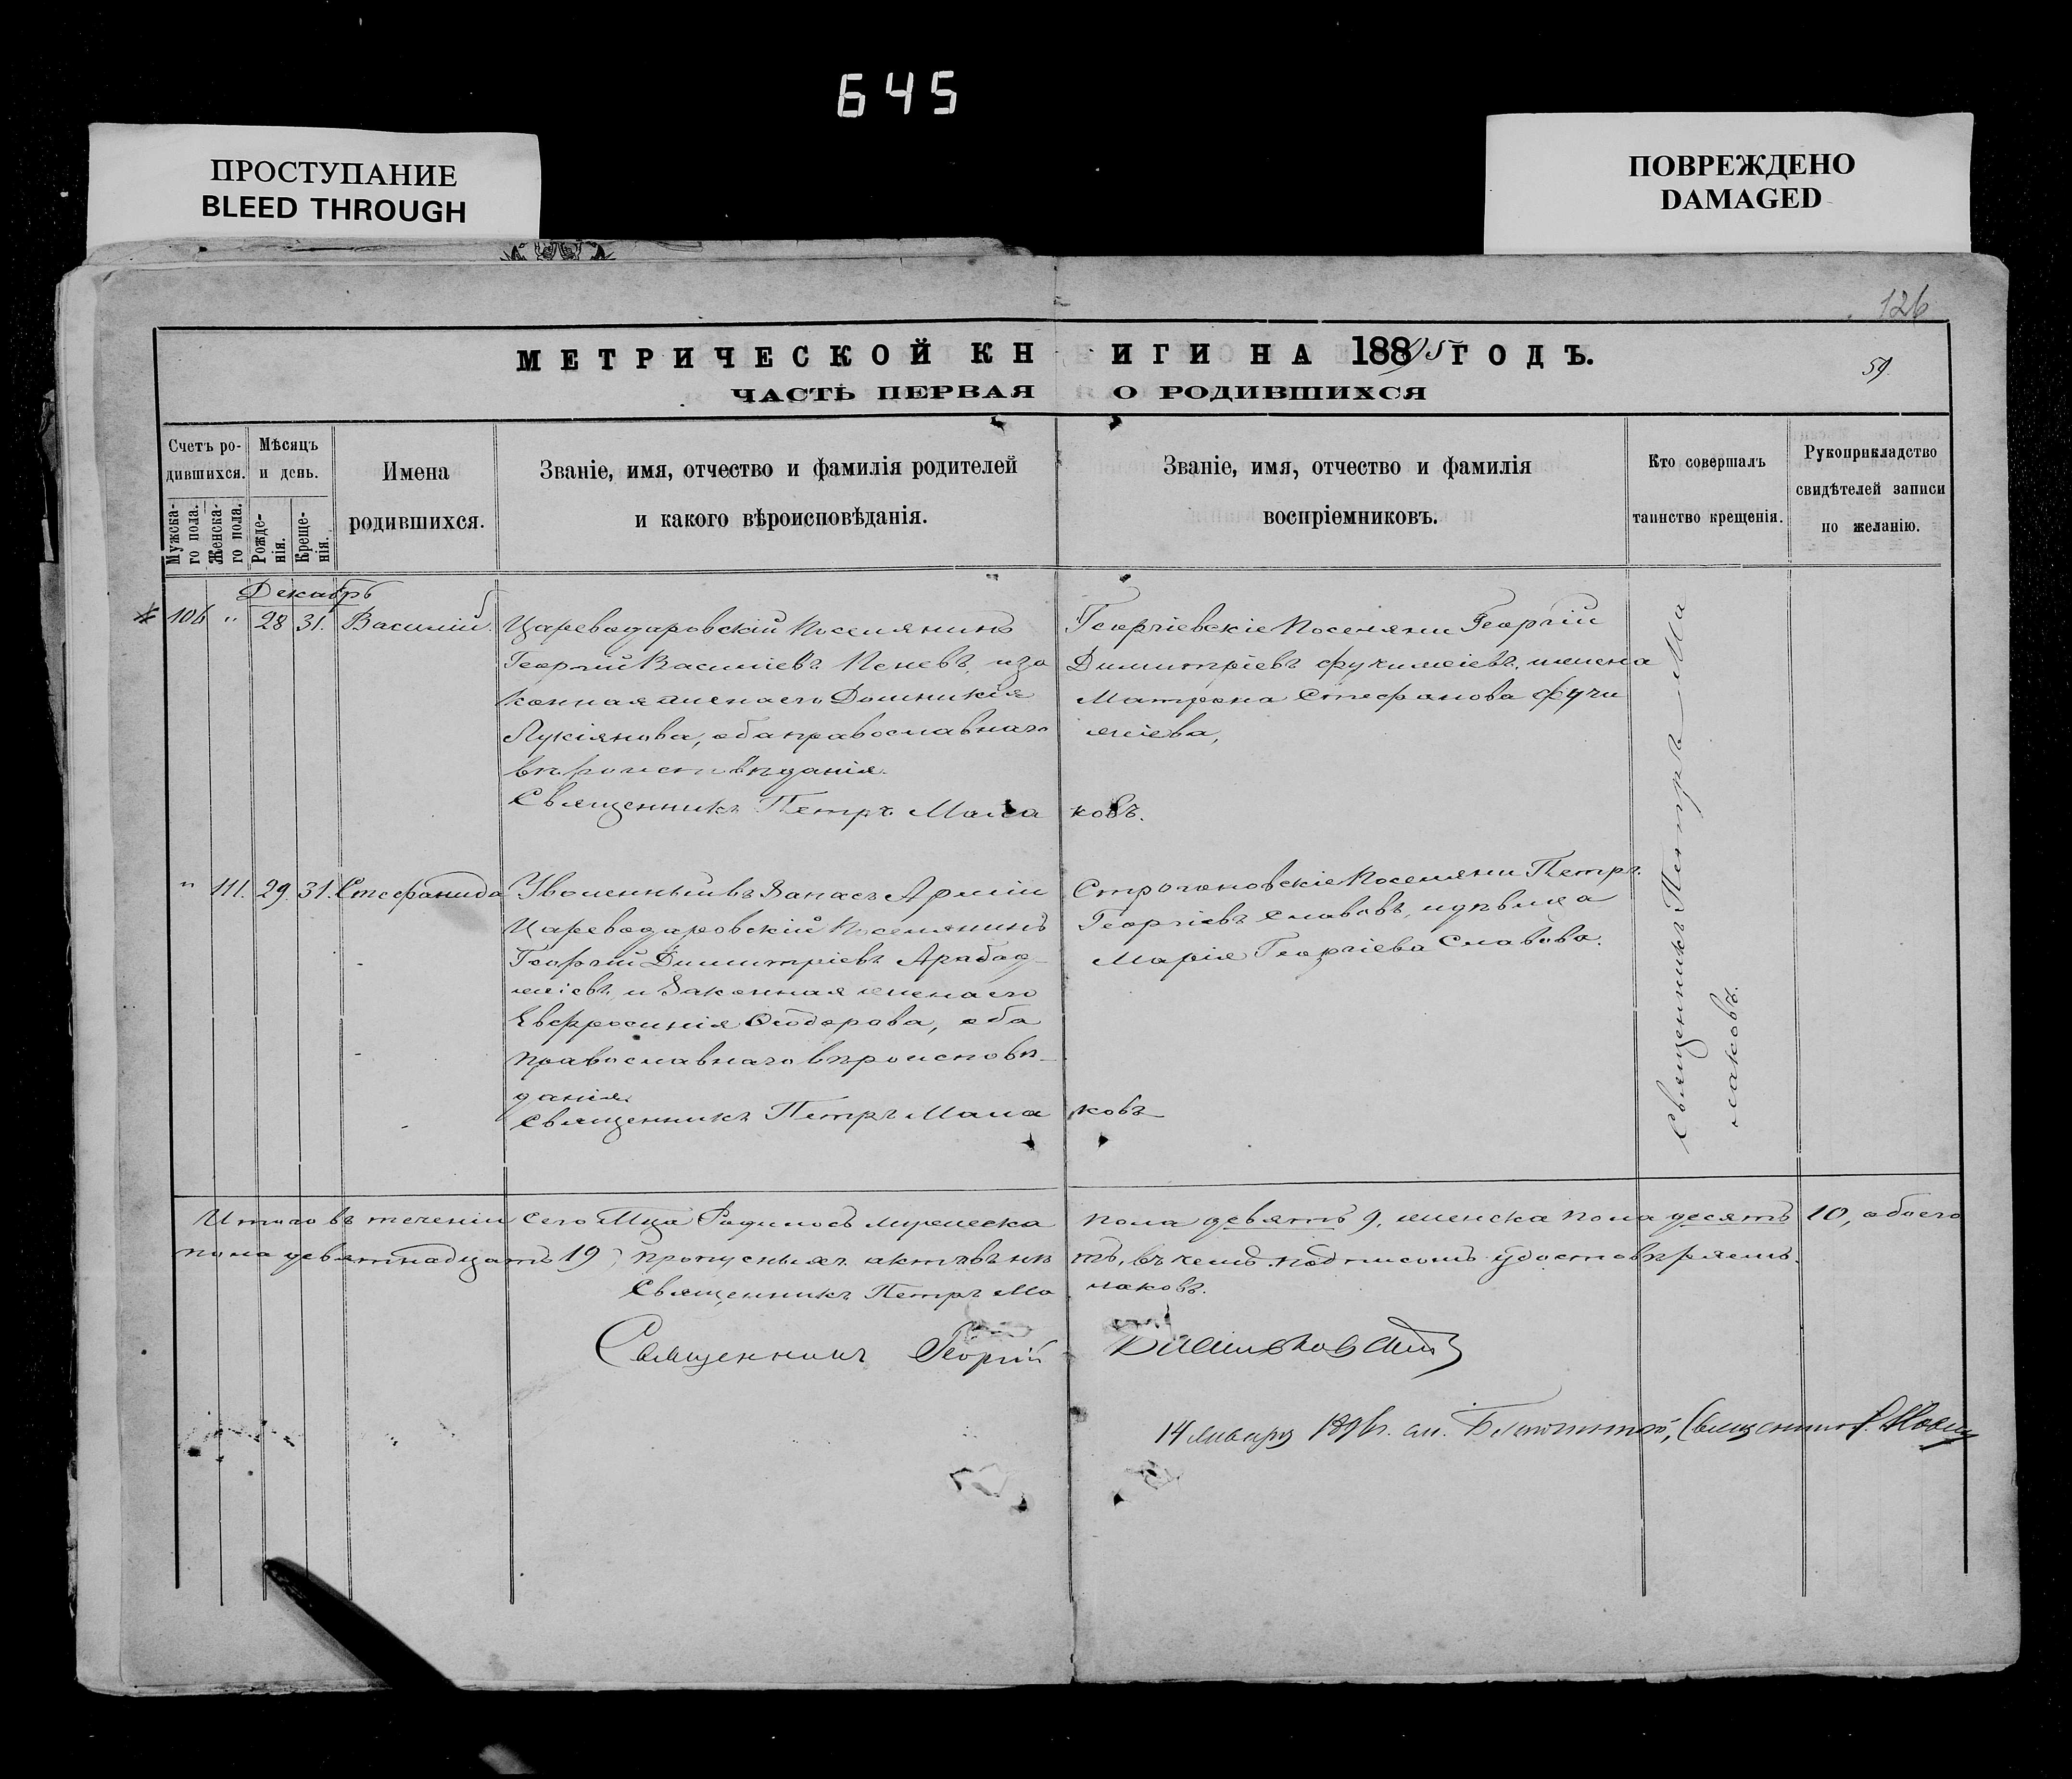 645
ПРОСТУПАНИЕ
BLEED THROUGH
ПОВРЕЖДЕНО
DAMAGED
126
МЕТРИЧЕСКОЙ КНИГИ НА 1895 ГОДЪ.
59.
ЧАСТЬ ПЕРВАЯ О РОДИВШИХСЯ
Счетъ ро-
дившихся.
Мужска-
го пола.
Женска-
го пола.
Мѣсяцъ
и день.
Рожде-
нія.
Креще-
нія.
Имена
родившихся.
Званіе, имя, отчество и фамилія родителей
и какого вѣроисповѣданія.
Званіе, имя, отчество и фамилія
воспріемниковъ.
Кто совершалъ
таинство крещенія.
Рукоприкладство
свидѣтелей записи
по желанію.
Декабрь
106 " 28 31. Василій
Царевадаровскій Поселянинъ
Георгій Василіевъ Пеневъ, и за
конная жена его Домникія
Лукіянова, оба православнаго
вѣроисповѣданія.
Священникъ Петръ Малаковъ.
Георгіевскіе Поселяни Георгій
Димитріевъ и жена
Матрона Стефанова
жіева,
" 111. 29. 31. Стефанида
Уволенный въ Запасъ Арміи
Царевадаровскій Поселянинъ
Георгій Димитріевъ Арабад-
жіевъ, и Законная жена его
Евфросинія Ѳеодорова, оба
православнаго вѣроисповѣ-
данія.
Священникъ Петръ Малаковъ
Строгановскіе Поселяни Петръ
Георгіевъ Славовъ, и дѣвица
Марія Георгіева Славова.
Священникъ Петръ Ма
лаковъ.
Итого въ теченіи сего Мца Родилось мужеска пола девять 9, женска пола десять 10, обоего
пола девятнадцать 19, пропусныхъ актовъ нѣтъ, въ чемъ подписомъ удостовѣряемъ.
Священникъ Петръ Малаковъ.
Священникъ Георгій
14 Января 1896 г. Священникъ